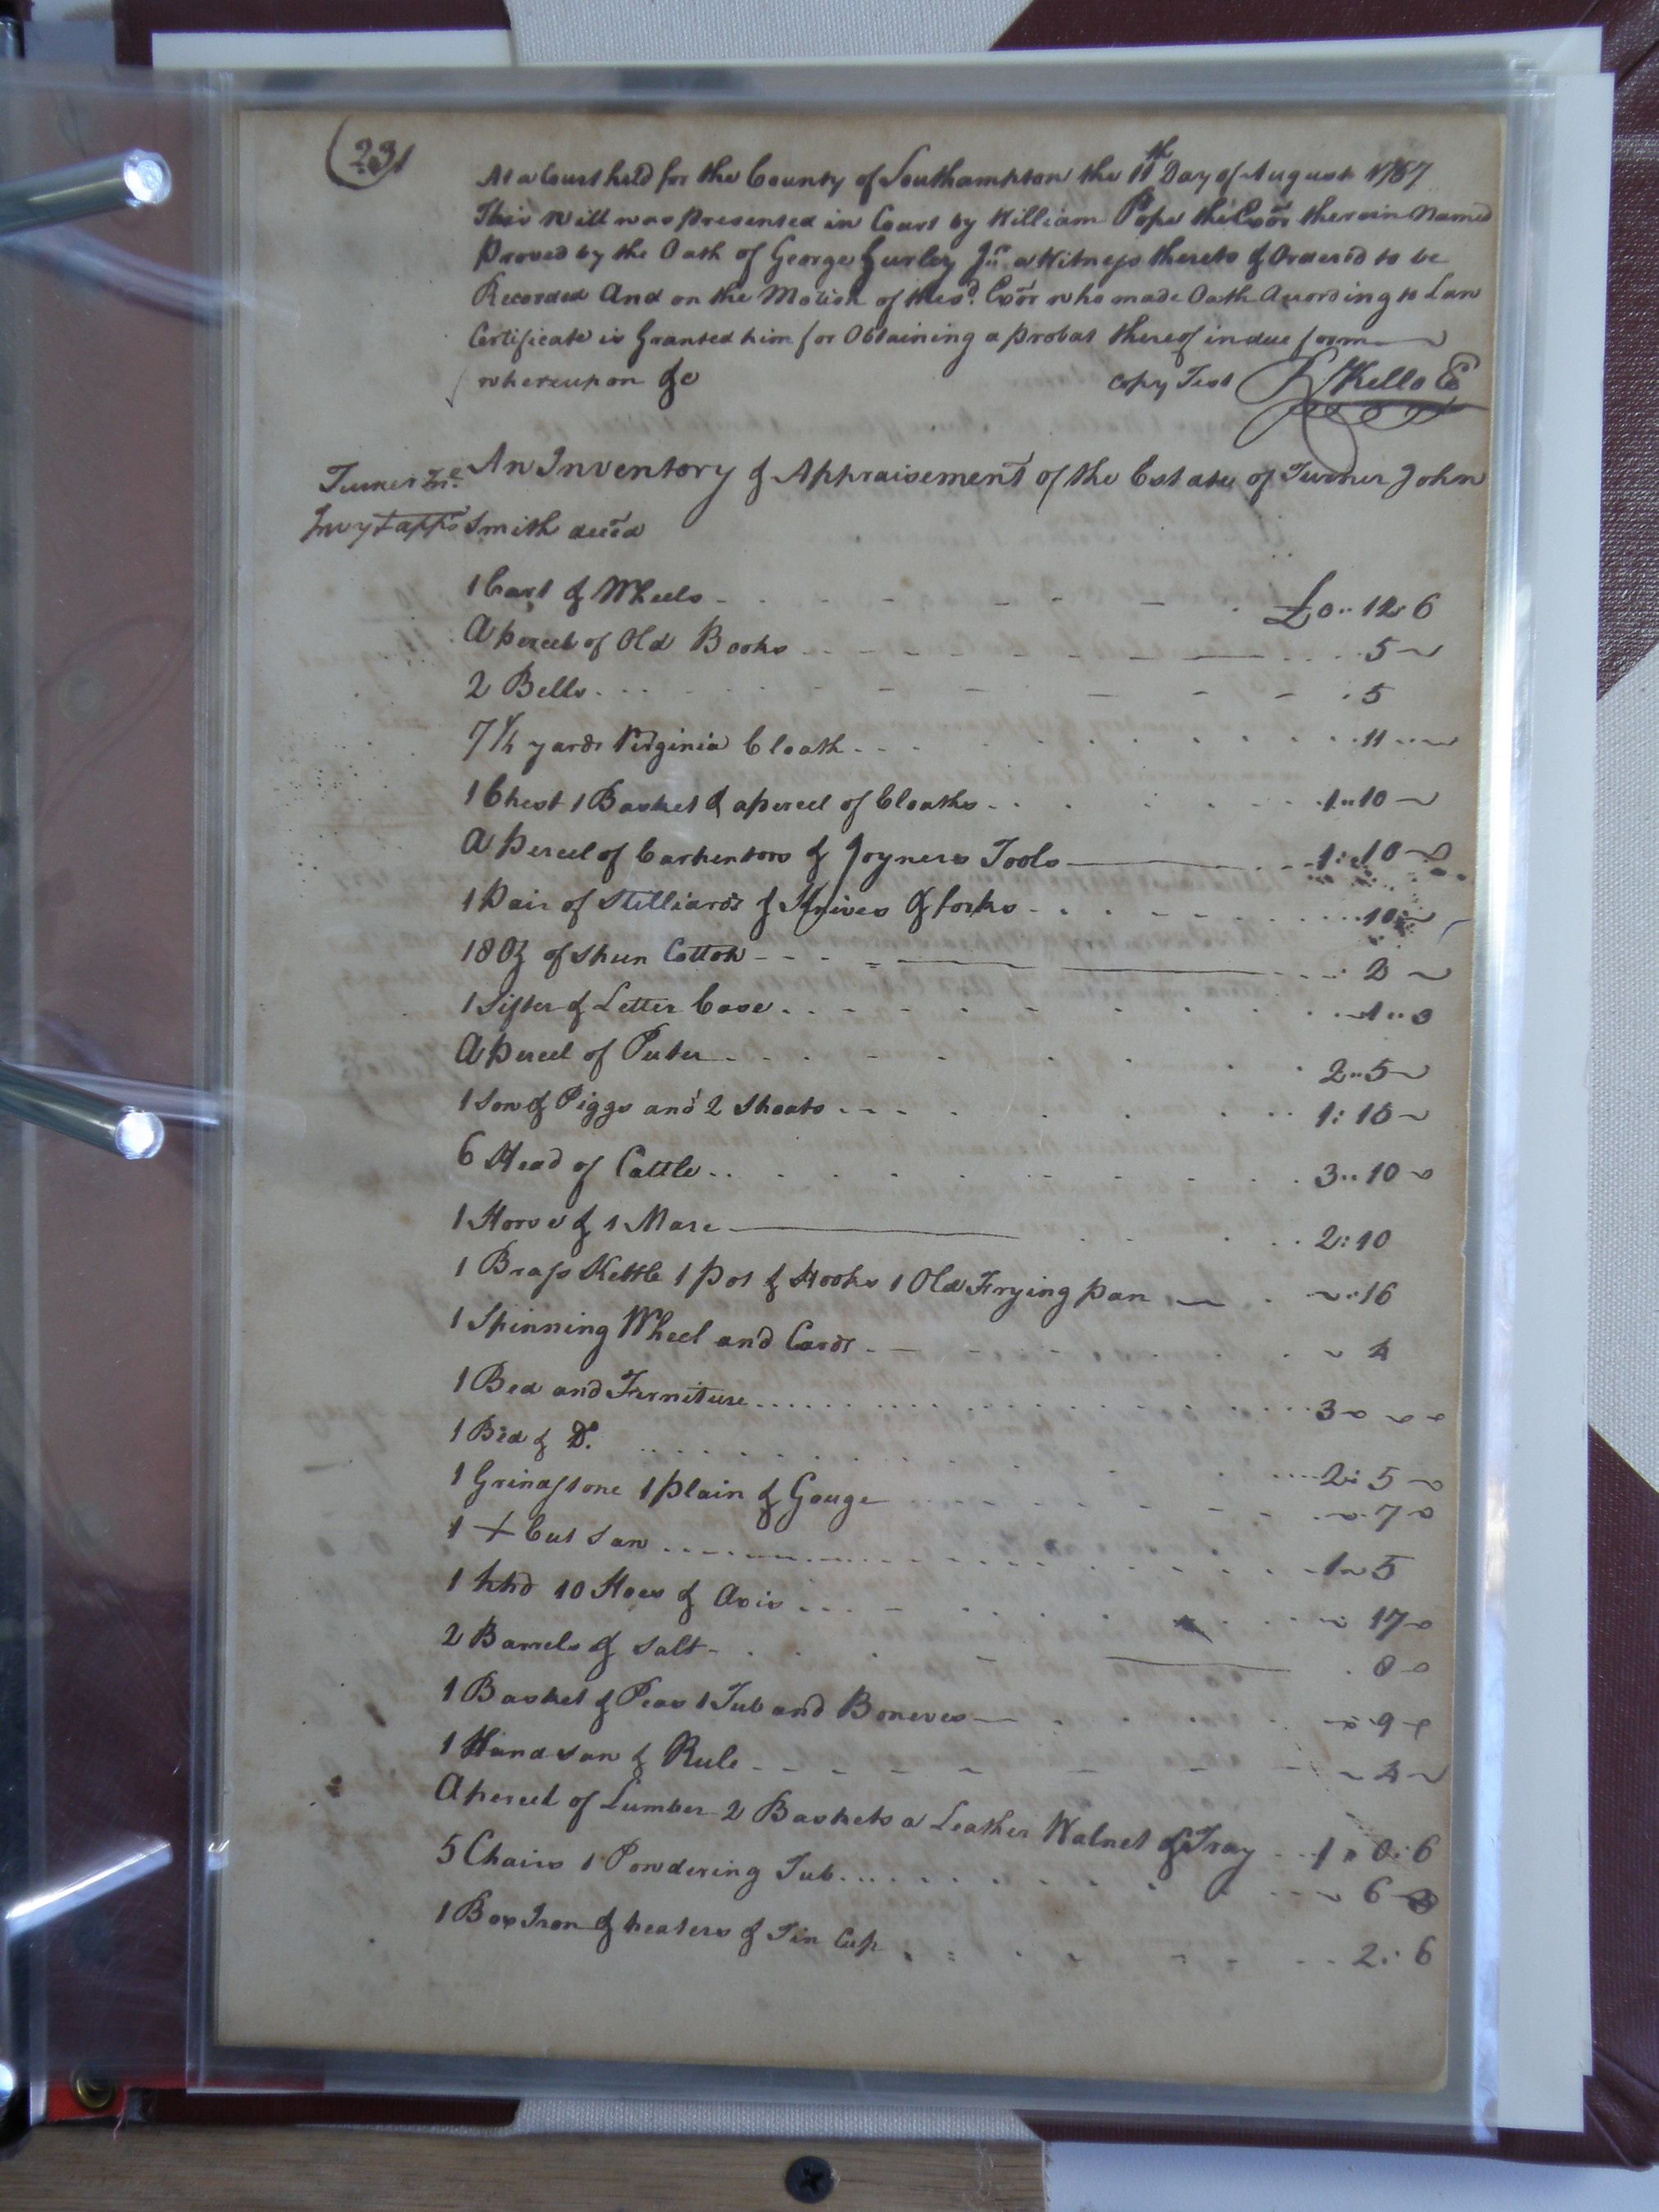 (231
At a Court held for the County of Southampton the 11th Day of August 1767
This Will was presented in Court by William Pope the Exor therein Named
Proved by the Oath of George Gurley Jr. a Witness thereto & Ordered to be
Recorded And on the Motion of the sd. Exor who made Oath According to Law
Certificate is Granted him for Obtaining a probat thereof in due form
whereupon &c copy Test R Kello C
An Inventory & Appraisement of the Estate of Turner John
Smith decd
Invy & apps
1 Cart & Wheels £0..12.6
A percel of Old Books 5
2 Bells 5
7 1/4 yards Virginia Cloath 11
1 Chest 1 Basket & a percel of Cloaths 1..10
A percel of Carpentors & Joyners Tools 1..10
1 Pair of Stilliards & Knives & forks 10
18 Oz of spun Cotton 2
1 Sifter & Letter Case 1..3
A percel of Puter 2..5
1 Sow & Piggs and 2 Shoats 1:15
6 Head of Cattle 3..10
1 Horse & 1 Mare 2:10
1 Brass Kettle 1 pot & Hooks 1 Old Frying pan 16
1 Spinning Wheel and Cards 4
1 Bed and Furniture 3
1 Bed & Do. 2:5
1 Grindstone 1 plain & Gouge 7
1 + Cut Saw 1 5
1 hhd 10 Hoes & Axis 17
2 Barrels & Salt 8
1 Basket & Peas 1 Tub and 9
1 Hand saw & Rule 4
A percel of Lumber 2 Baskets a Leather Walnet & Tray 1 0:6
5 Chairs 1 Powdering Tub 6
1 Box Iron & heaters & Tin Cup 2:6